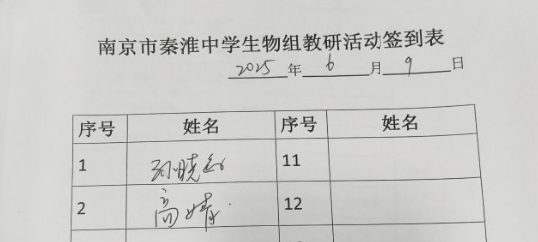 南京市秦淮中学生物组教研活动签到表
2025年6月9日
序号 姓名 序号 姓名
1 孙晓 11
2 高婧 12